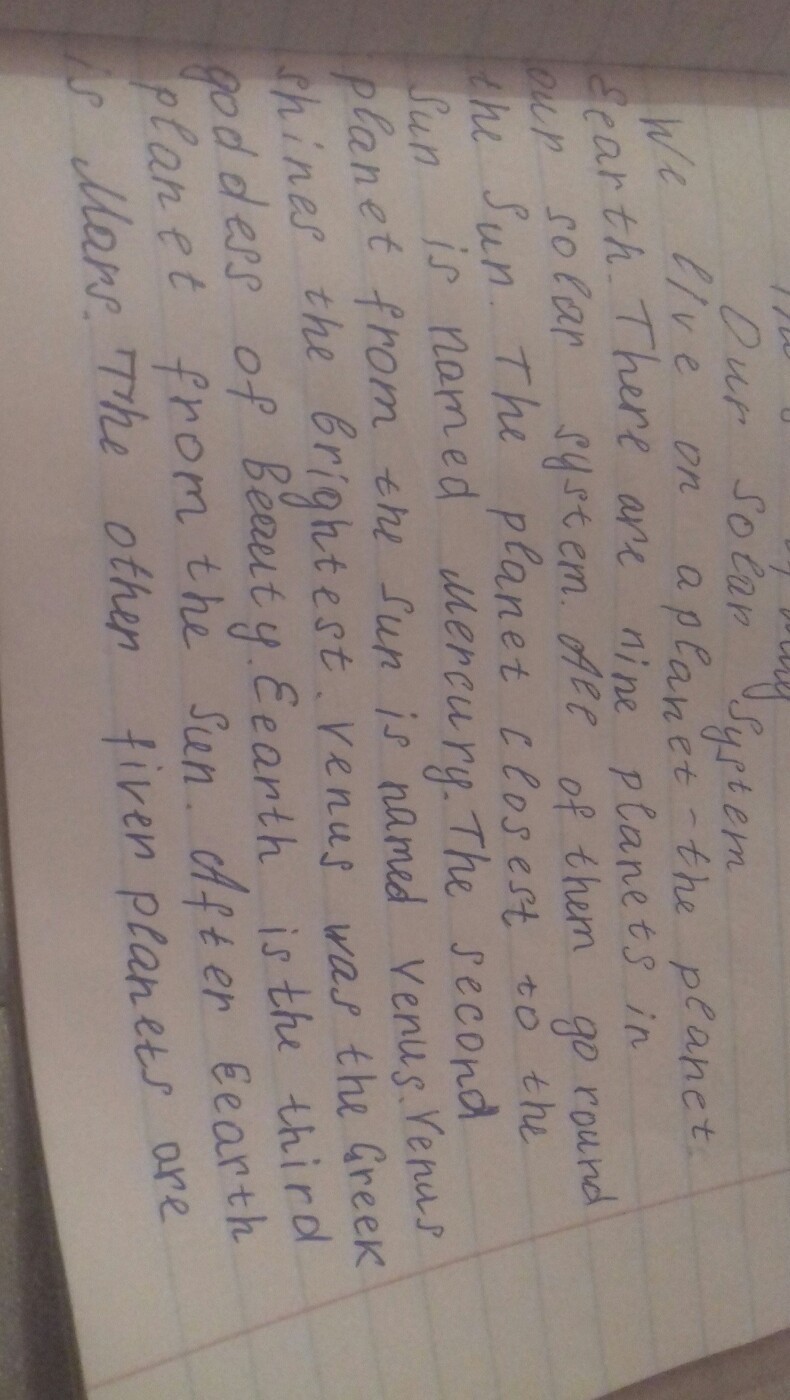 Our Solar System
We live on a planet - the planet
Eearth. There are nine planets in
our solar system. All of them go round
the Sun. The planet closest to the
Sun is named Mercury. The second
planet from the Sun is named Venus. Venus
shines the brightest. Venus was the Greek
goddess of Beauty. Eearth is the third
planet from the Sun. After Eearth
is Mars. The other fiver planets are